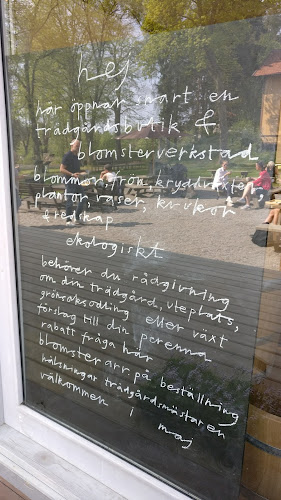 hej
här öppnar snart en
trädgårdsbutik &
blomsterverkstad
blommor, frön, kryddväxter
plantor, vaser, krukor
& redskap
ekologiskt
behöver du rådgivning
om din trädgård, uteplats,
grönsaksodling eller växt
förslag till din perenna
rabatt fråga här
blomsterarr. på beställning
hälsningar trädgårdsmästaren
välkommen i maj